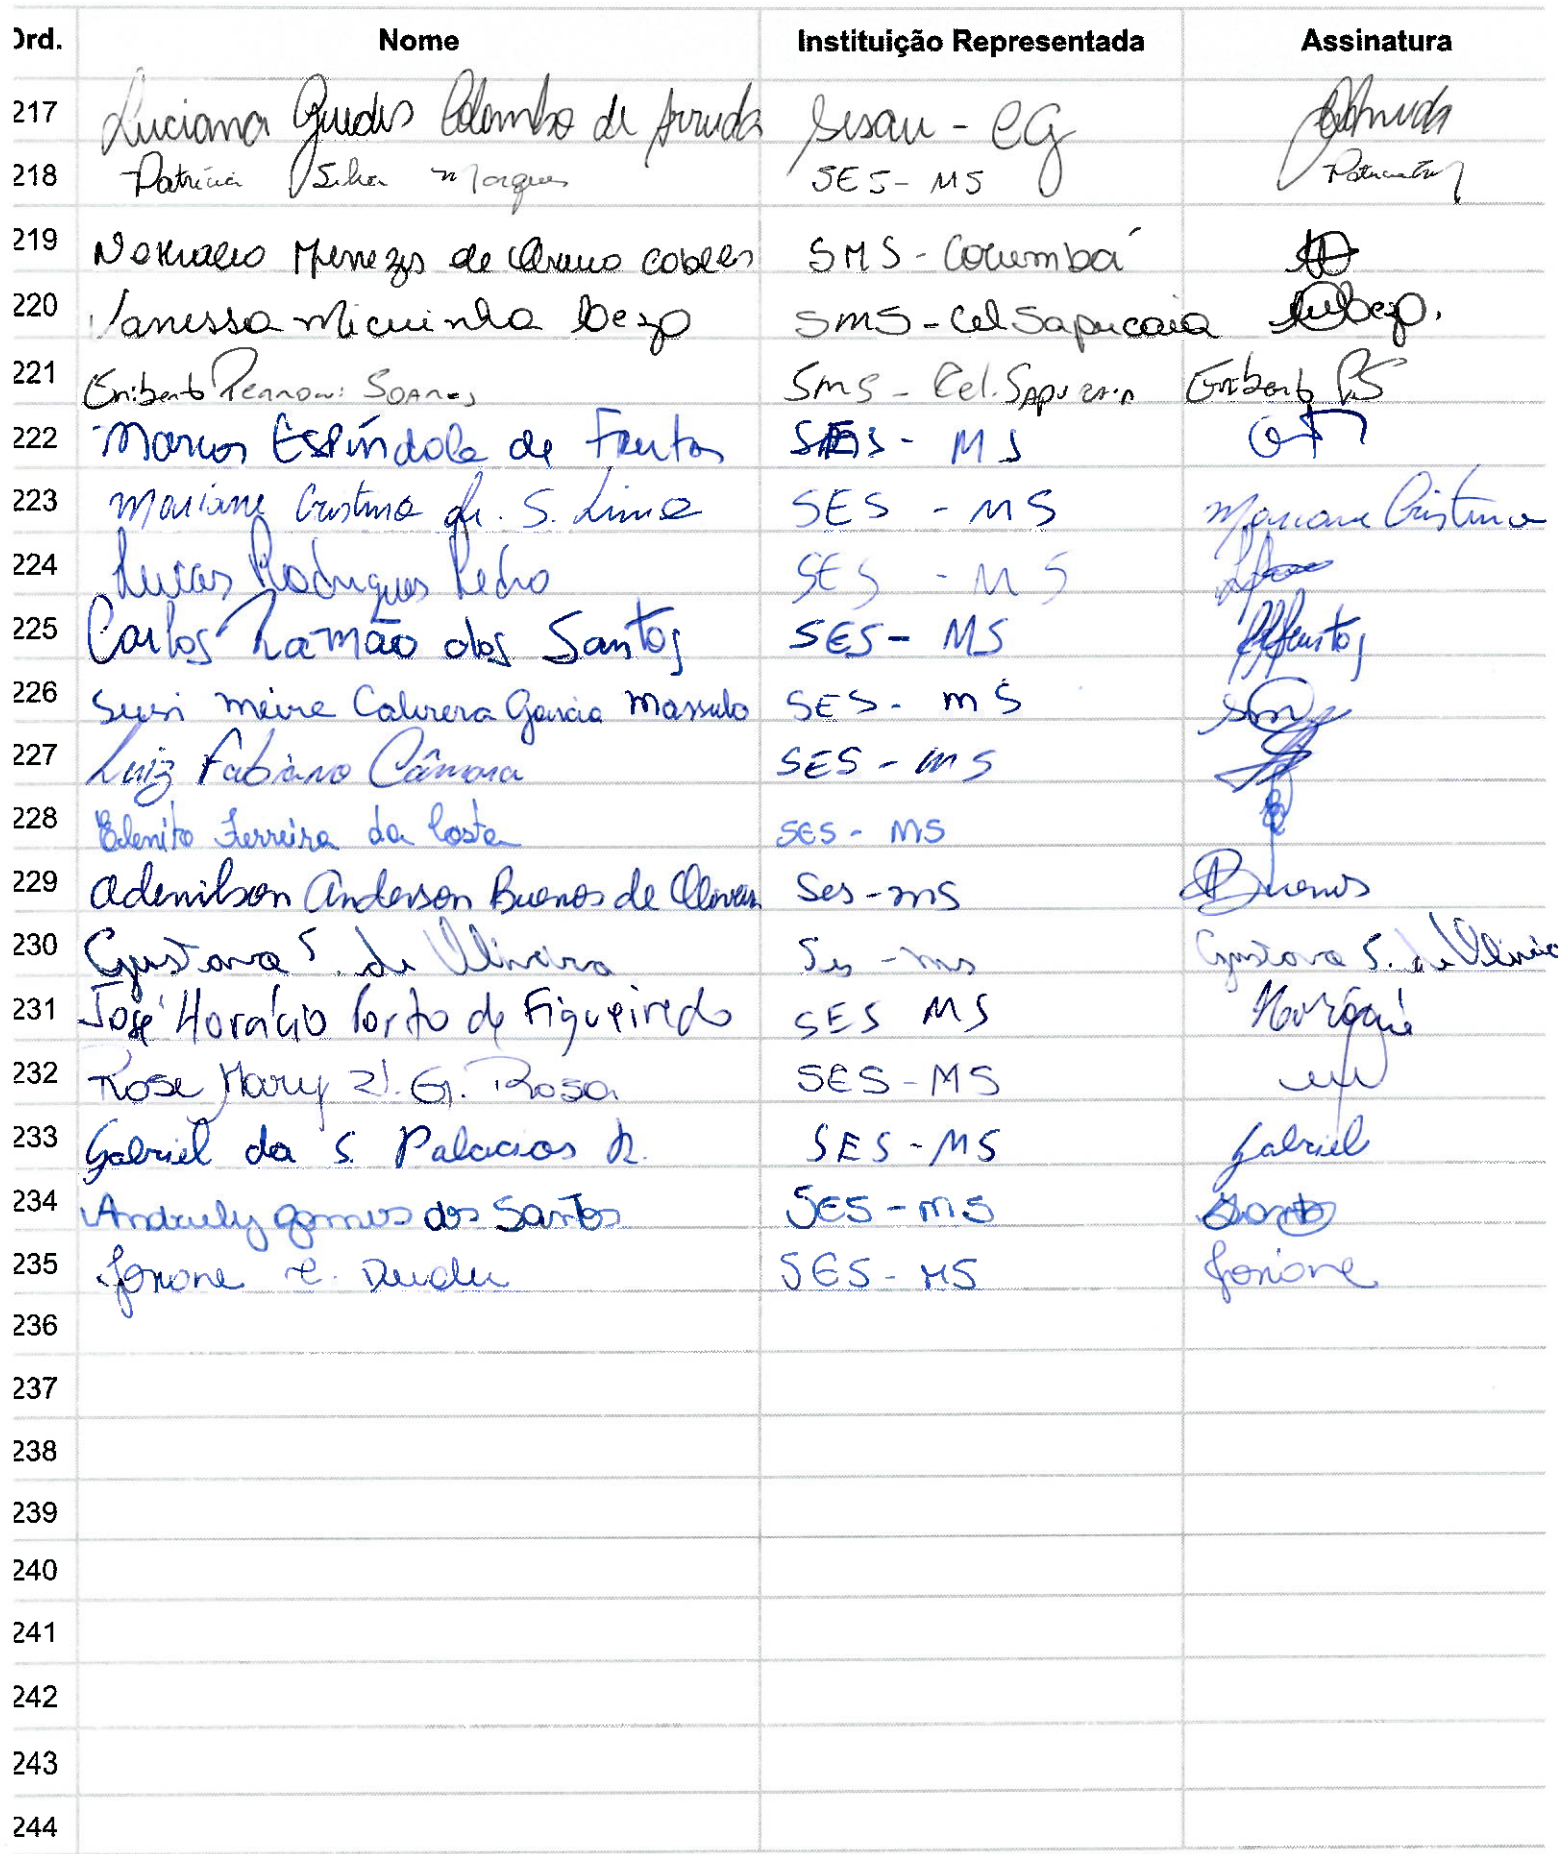 Ord. Nome Instituição Representada Assinatura
217 Luciana Guedes Colombo de Arruda Sesau - CG
218 Patricia Silva Marques SES - MS
219 Menezes de SMS - Corumbá
220 Vanessa SMS - Cel Sapucaia
221 Eriberto Soares SMS - Cel. Sapucaia Eriberto PS
222 Marcos Espíndola de Freitas SES - MS
223 Mariane Cristina de S. Lima SES - MS Mariane Cristina
224 Lucas Rodrigues Pedro SES - MS
225 Carlos Ramão dos Santos SES - MS
226 Susi Meire Cabrera Garcia Massulo SES - MS
227 Luiz Fabiano Câmara SES - MS
228 Edenito Ferreira da Costa SES - MS
229 Adenilson Anderson Buenos de Oliveira Ses - ms Buenos
230 Gustavo S. de Oliveira Ses - ms Gustavo S. de Oliveira
231 José Horácio Porto de Figueiredo SES MS
232 Rose Mary G. Rosa SES - MS
233 Gabriel da S. Palacios R. SES - MS Gabriel
234 Andriely Gomes dos Santos SES - MS Santos
235 SES - MS
236
237
238
239
240
241
242
243
244